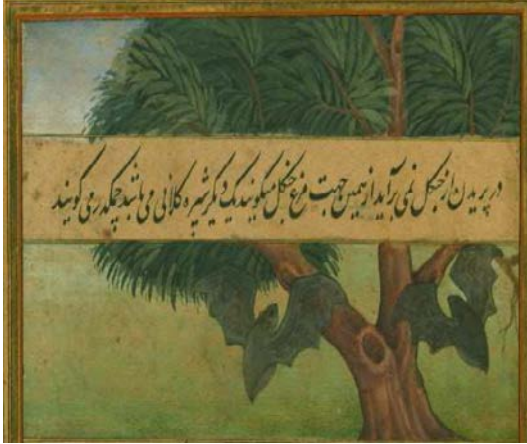 در پریدن از جنکل نمی برآید ازیمین جهت مرغ جنکل میکویند یک دیکر شپره کلانی می باشد چمکدر می کویند